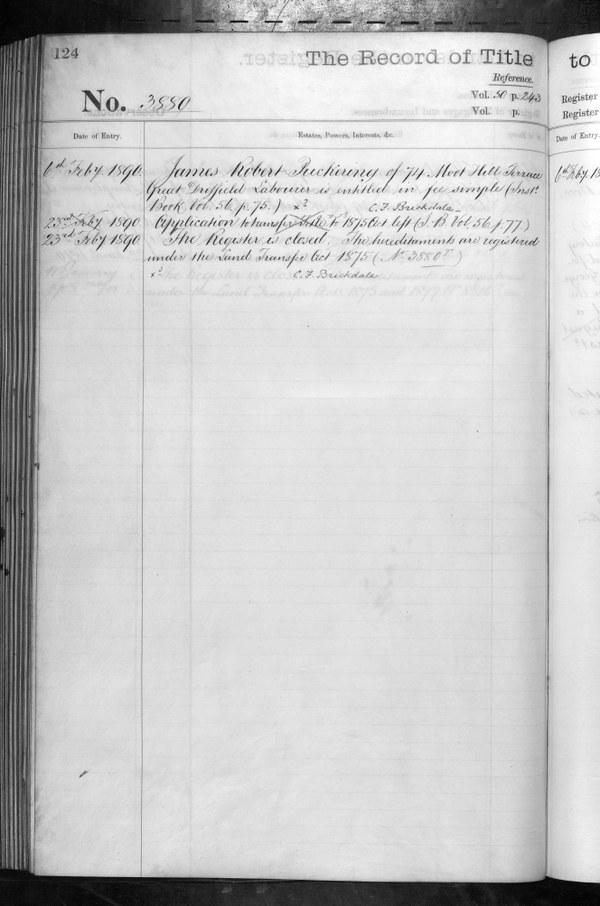 124
The Record of Title
to
Reference.
No. 3880
Vol. 50 p. 243
Vol. p.
Register
Register
Date of Entry.
Estates, Powers, Interests, &c.
Date of Entry.
6th Feby 1890. James Robert Pickering of 74 Moot Hill Terrace
Great Driffield Labourer is entitled in fee simple (Inst.
Book Vol. 56. p. 75.) C. F. Brickdale
23rd Feby 1890 Application to transfer to 1875 Act left (I. B. Vol. 56. p. 77.)
23rd Feby 1890 The Register is closed. The hereditaments are registered
under the Land Transfer Act 1875 (No. 3880)
C. F. Brickdale